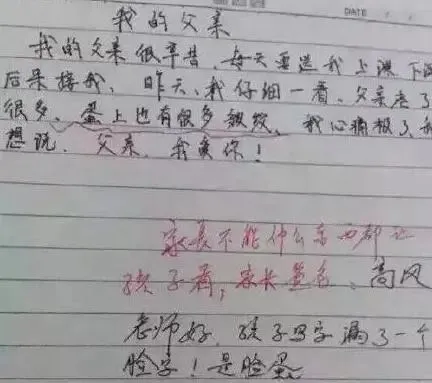 我的父亲
我的父亲很辛苦,每天要送我上课,下课
后来接我,昨天,我仔细一看,父亲老了
很多,蛋上也有很多皱纹,我心痛极了,我
想说,父亲,我爱你!
家长不能什么东西都让
孩子看,家长签名、高风
老师好,孩子写字漏了一个
脸字!是脸蛋